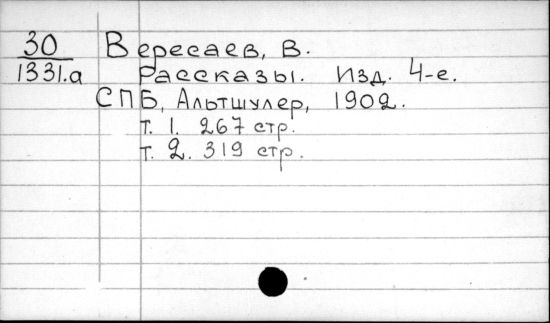 30 Вересаев, В.
1331.а Рассказы. Изд. 4-е.
СПБ, Альтшулер, 1902.
т. 1. 267 стр.
т. 2. 319 стр.